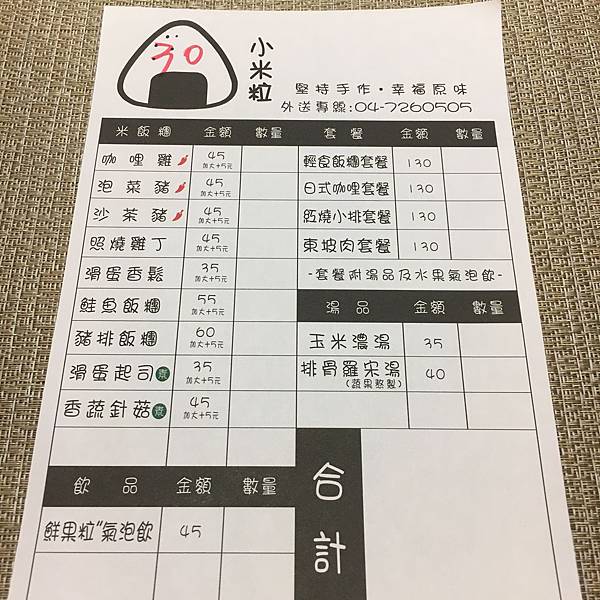 30
小米粒
堅持手作・幸福原味
外送專線:04-7260505
米飯糰 金額 數量
咖哩雞 45 加大+5元
泡菜豬 45 加大+5元
沙茶豬 45 加大+5元
照燒雞丁 45 加大+5元
滑蛋香鬆 35 加大+5元
鮭魚飯糰 55 加大+5元
豬排飯糰 60 加大+5元
滑蛋起司 素 35 加大+5元
香蔬針菇 素 45 加大+5元
飲品 金額 數量
鮮果粒"氣泡飲 45
套餐 金額 數量
輕食飯糰套餐 130
日式咖哩套餐 130
紅燒小排套餐 130
東坡肉套餐 130
-套餐附湯品及水果氣泡飲-
湯品 金額 數量
玉米濃湯 35
排骨羅宋湯 40
(蔬果熬製)
合計